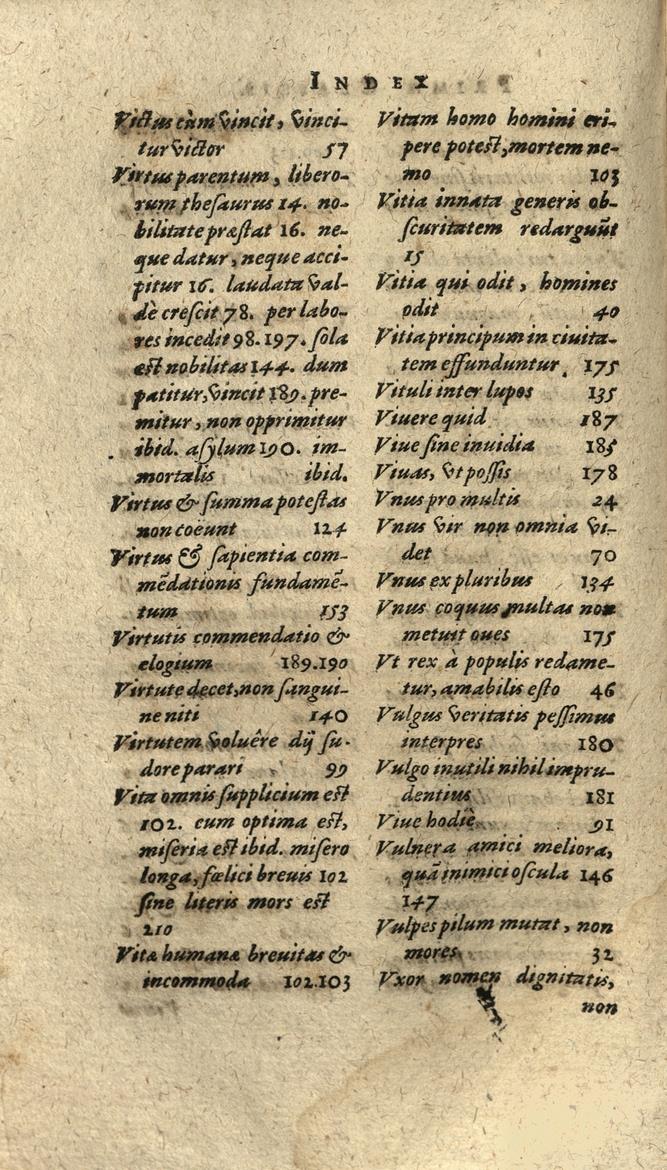 INDEX
Victus cùm vincit, vinci-
tur victor 57
Virtus parentum, libero-
rum thesaurus 14. no-
bilitate præstat 16. ne-
que datur, neque acci-
pitur 16. laudata val-
dè crescit 78. per labo-
res incedit 98. 197. sola
est nobilitas 144. dum
patitur, vincit 189. pre-
mitur, non opprimitur
ibid. asylum 190. im-
mortalis ibid.
Virtus & summa potestas
non coeunt 124
Virtus & sapientia com-
mēdationis fundamē-
tum 153
Virtutis commendatio &
elogium 189.190
Virtute decet, non sangui-
ne niti 140
Virtutem voluêre dij su-
dore parari 99
Vita omnis supplicium est
102. cum optima est,
miseria est ibid. misero
longa, fœlici breuis 102
sine literis mors est
210
Vitæ humanæ breuitas &
incommoda 102.103
Vitam homo homini eri-
pere potest, mortem ne-
mo 103
Vitia innata generis ob-
scuritatem redarguūt
15
Vitia qui odit, homines
odit 40
Vitia principum in ciuita-
tem effunduntur. 175
Vituli inter lupos 135
Viuere quid 187
Viue sine inuidia 185
Viuas, vt possis 178
Vnus pro multis 24
Vnus vir non omnia vi-
det 70
Vnus ex pluribus 134
Vnus coquus multas non
metuit oues 175
Vt rex à populis redame-
tur, amabilis esto 46
Vulgus veritatis pessimus
interpres 180
Vulgo inutili nihil impru-
dentius 181
Viue hodiè 91
Vulnera amici meliora,
quā inimici oscula 146
147
Vulpes pilum mutat, non
mores 32
Vxor nomen dignitatis,
non